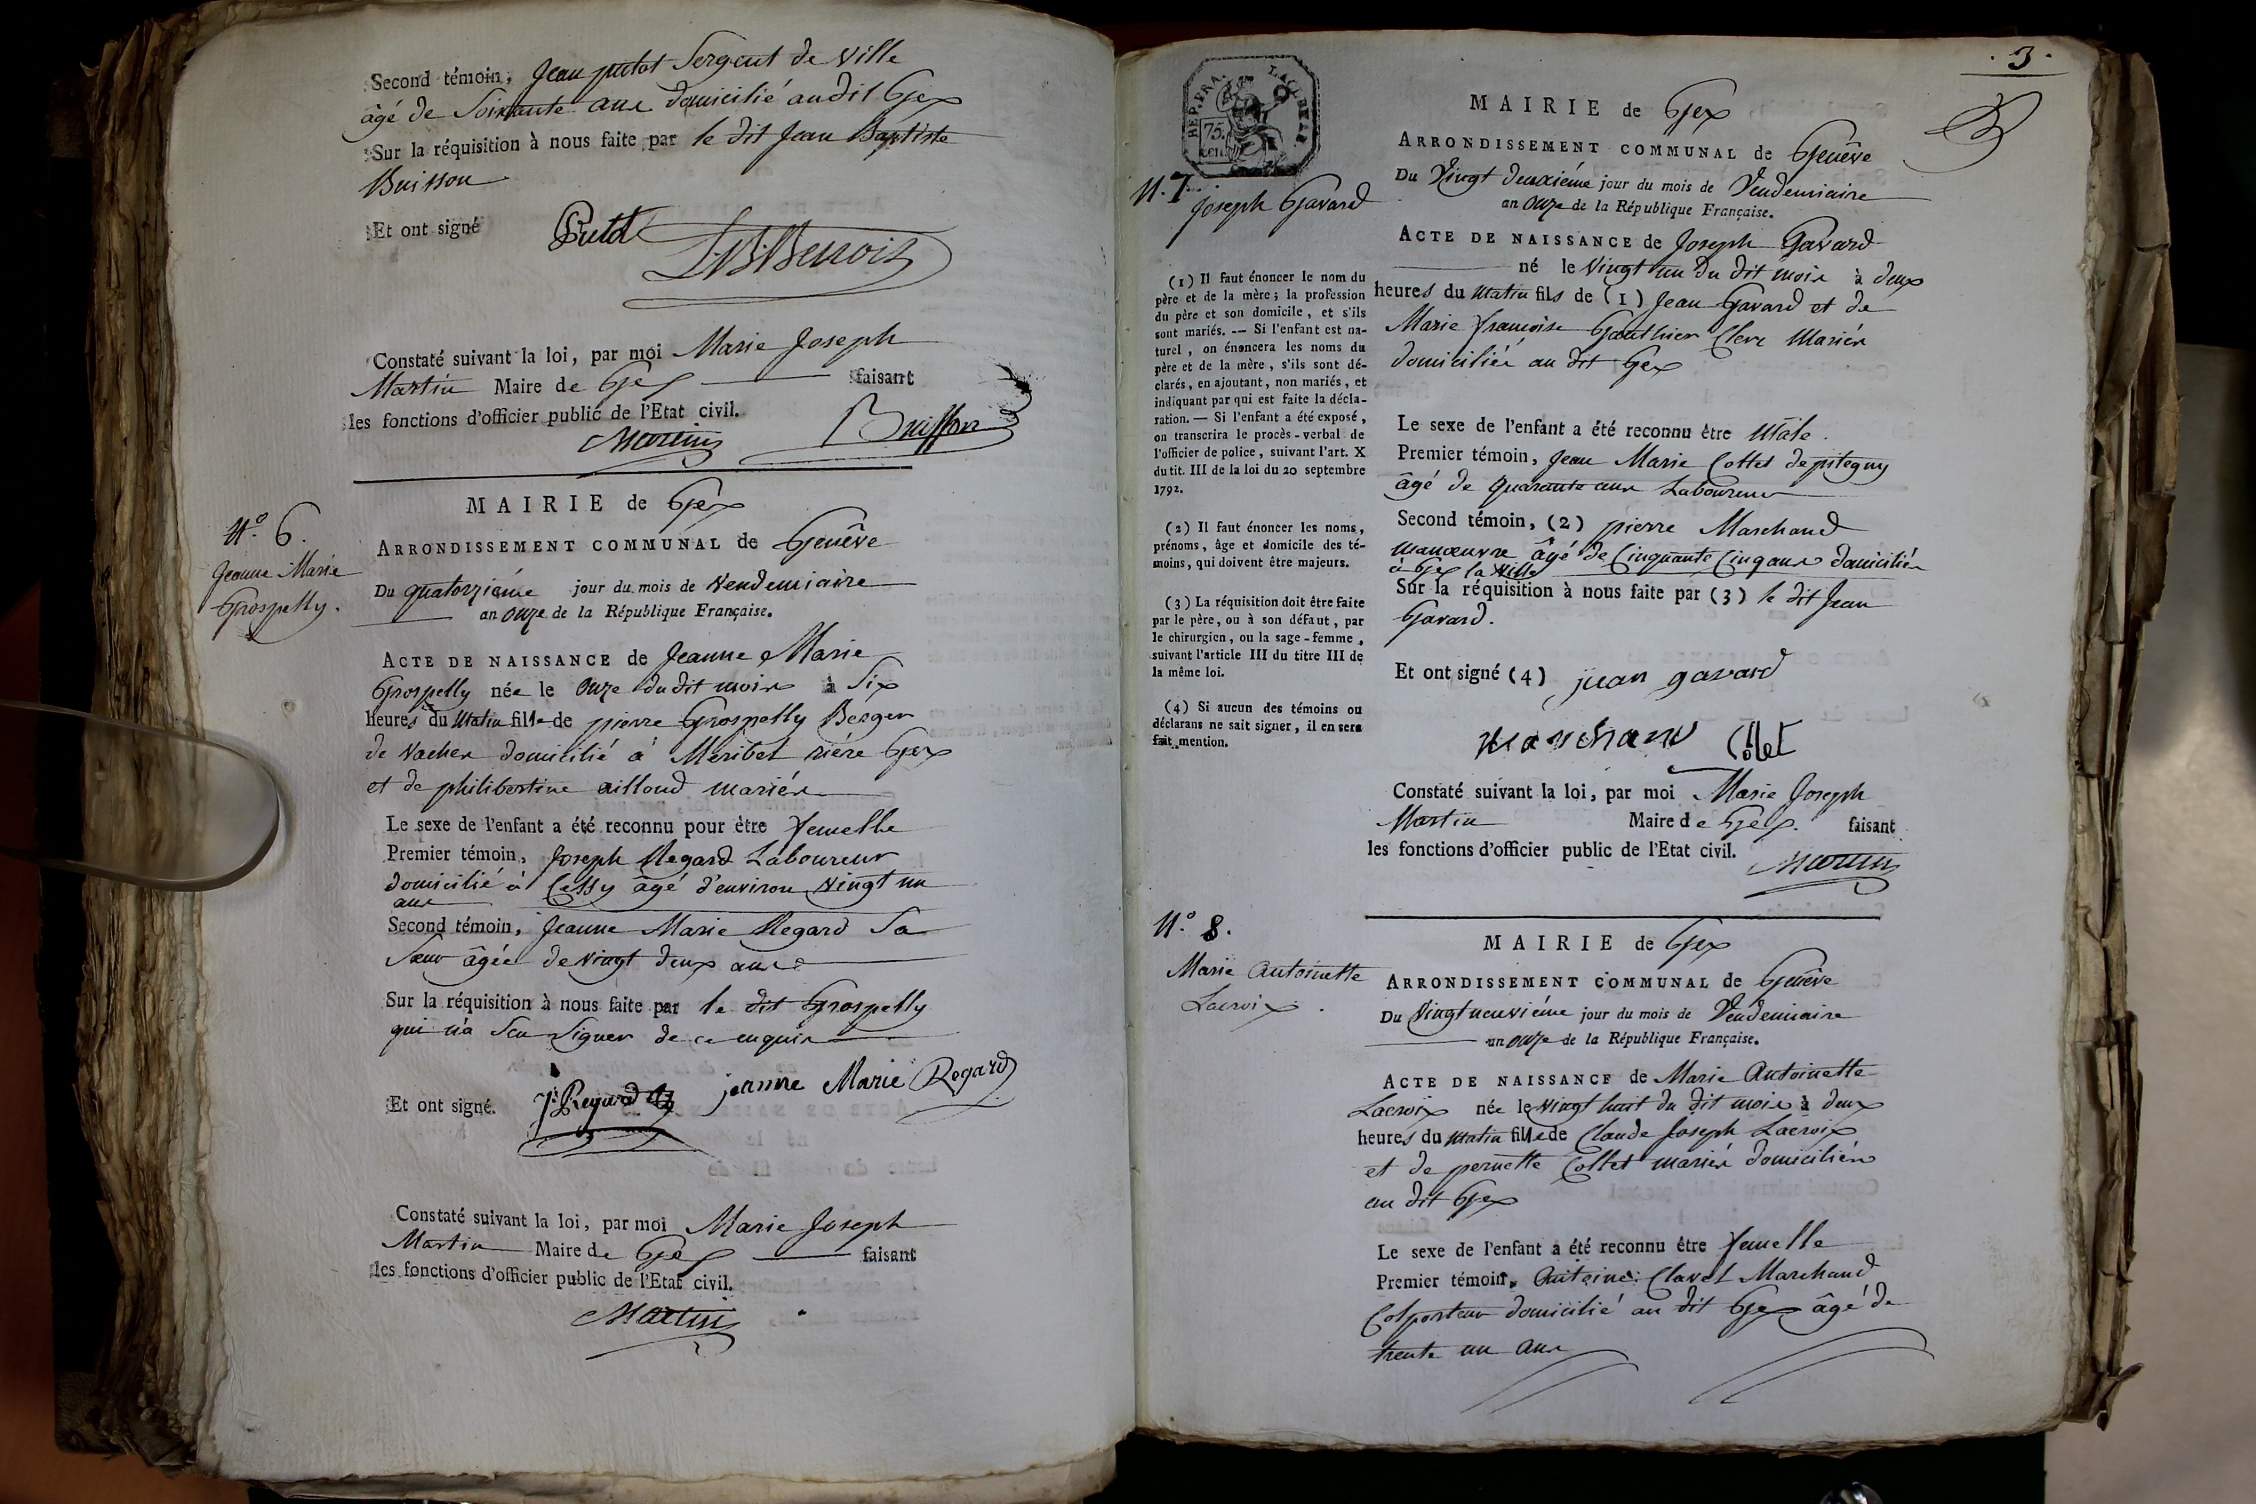 Second témoin, Jean putot Sergent de Ville
âgé de Soixante ans domicilié audit Gex
Sur la réquisition à nous faite par le dit Jean Baptiste
Buisson
Et ont signé Putot
J.B. Benoit
Constaté suivant la loi, par moi Marie Joseph
Martin Maire de Gex faisant
les fonctions d'officier public de l'Etat civil.
Martin Buisson
N.º 6.
Jeanne Marie
Grospelly.
MAIRIE de Gex
ARRONDISSEMENT COMMUNAL de Genêve
Du quatorziéme jour du mois de Vendemiaire
an onze de la République Française.
ACTE DE NAISSANCE de Jeanne Marie
Grospelly née le onze du dit mois à Six
heures du Matin fille de pierre Grospelly Berger
de Vaches domicilié à Meribet riére Gex
et de philibertine ailloud mariés
Le sexe de l'enfant a été reconnu pour être femelle
Premier témoin, Joseph Regard Laboureur
domicilié à Cessy âgé d'environ Vingt un
ans
Second témoin, Jeanne Marie Regard Sa
Sœur âgée de Vingt deux ans
Sur la réquisition à nous faite par le dit Grospelly
qui n'a Scu Signer de ce enquis
Et ont signé. Jh Regard jeanne Marie Regard
Constaté suivant la loi, par moi Marie Joseph
Martin Maire de Gex faisant
les fonctions d'officier public de l'Etat civil.
Martin
. 3 .
REP. FRA.
75.
cen.
N. 7.
Joseph Gavard
MAIRIE de Gex
ARRONDISSEMENT COMMUNAL de Genêve
Du Vingt deuxiéme jour du mois de Vendemiaire
an onze de la République Française.
ACTE DE NAISSANCE de Joseph Gavard
né le Vingt un du dit mois à deux
heures du Matin fils de (1) Jean Gavard et de
Marie françoise Gauthier Clerc Mariés
domiciliés au dit Gex
Le sexe de l'enfant a été reconnu être Male.
Premier témoin, Jean Marie Collet de pitegny
âgé de quarante ans Laboureur
Second témoin, (2) pierre Marchand
manœuvre âgé de Cinquante Cinq ans domicilié
à Gex la Ville
Sur la réquisition à nous faite par (3) le dit Jean
Gavard.
Et ont signé (4) jean gavard
marchand Collet
Constaté suivant la loi, par moi Marie Joseph
Martin Maire de Gex. faisant
les fonctions d'officier public de l'Etat civil.
Martin
(1) Il faut énoncer le nom du
père et de la mère ; la profession
du père et son domicile, et s'ils
sont mariés. -- Si l'enfant est na-
turel, on énoncera les noms du
père et de la mère, s'ils sont dé-
clarés, en ajoutant, non mariés, et
indiquant par qui est faite la décla-
ration. — Si l'enfant a été exposé,
on transcrira le procès-verbal de
l'officier de police, suivant l'art. X
du tit. III de la loi du 20 septembre
1792.
(2) Il faut énoncer les noms,
prénoms, âge et domicile des té-
moins, qui doivent être majeurs.
(3) La réquisition doit être faite
par le père, ou à son défaut, par
le chirurgien, ou la sage-femme,
suivant l'article III du titre III de
la même loi.
(4) Si aucun des témoins ou
déclarans ne sait signer, il en sera
fait mention.
N.º 8.
Marie Antoinette
Lacroix.
MAIRIE de Gex
ARRONDISSEMENT COMMUNAL de Genêve
Du Vingt neuviéme jour du mois de Vendemiaire
an onze de la République Française.
ACTE DE NAISSANCE de Marie Antoinette
Lacroix née le Vingt huit du dit mois à deux
heures du Matin fille de Claude Joseph Lacroix
et de pernette Collet mariés domiciliés
au dit Gex
Le sexe de l'enfant a été reconnu être femelle
Premier témoin, Antoine Clavel Marchand
Colporteur domicilié au dit Gex âgé de
trente un ans